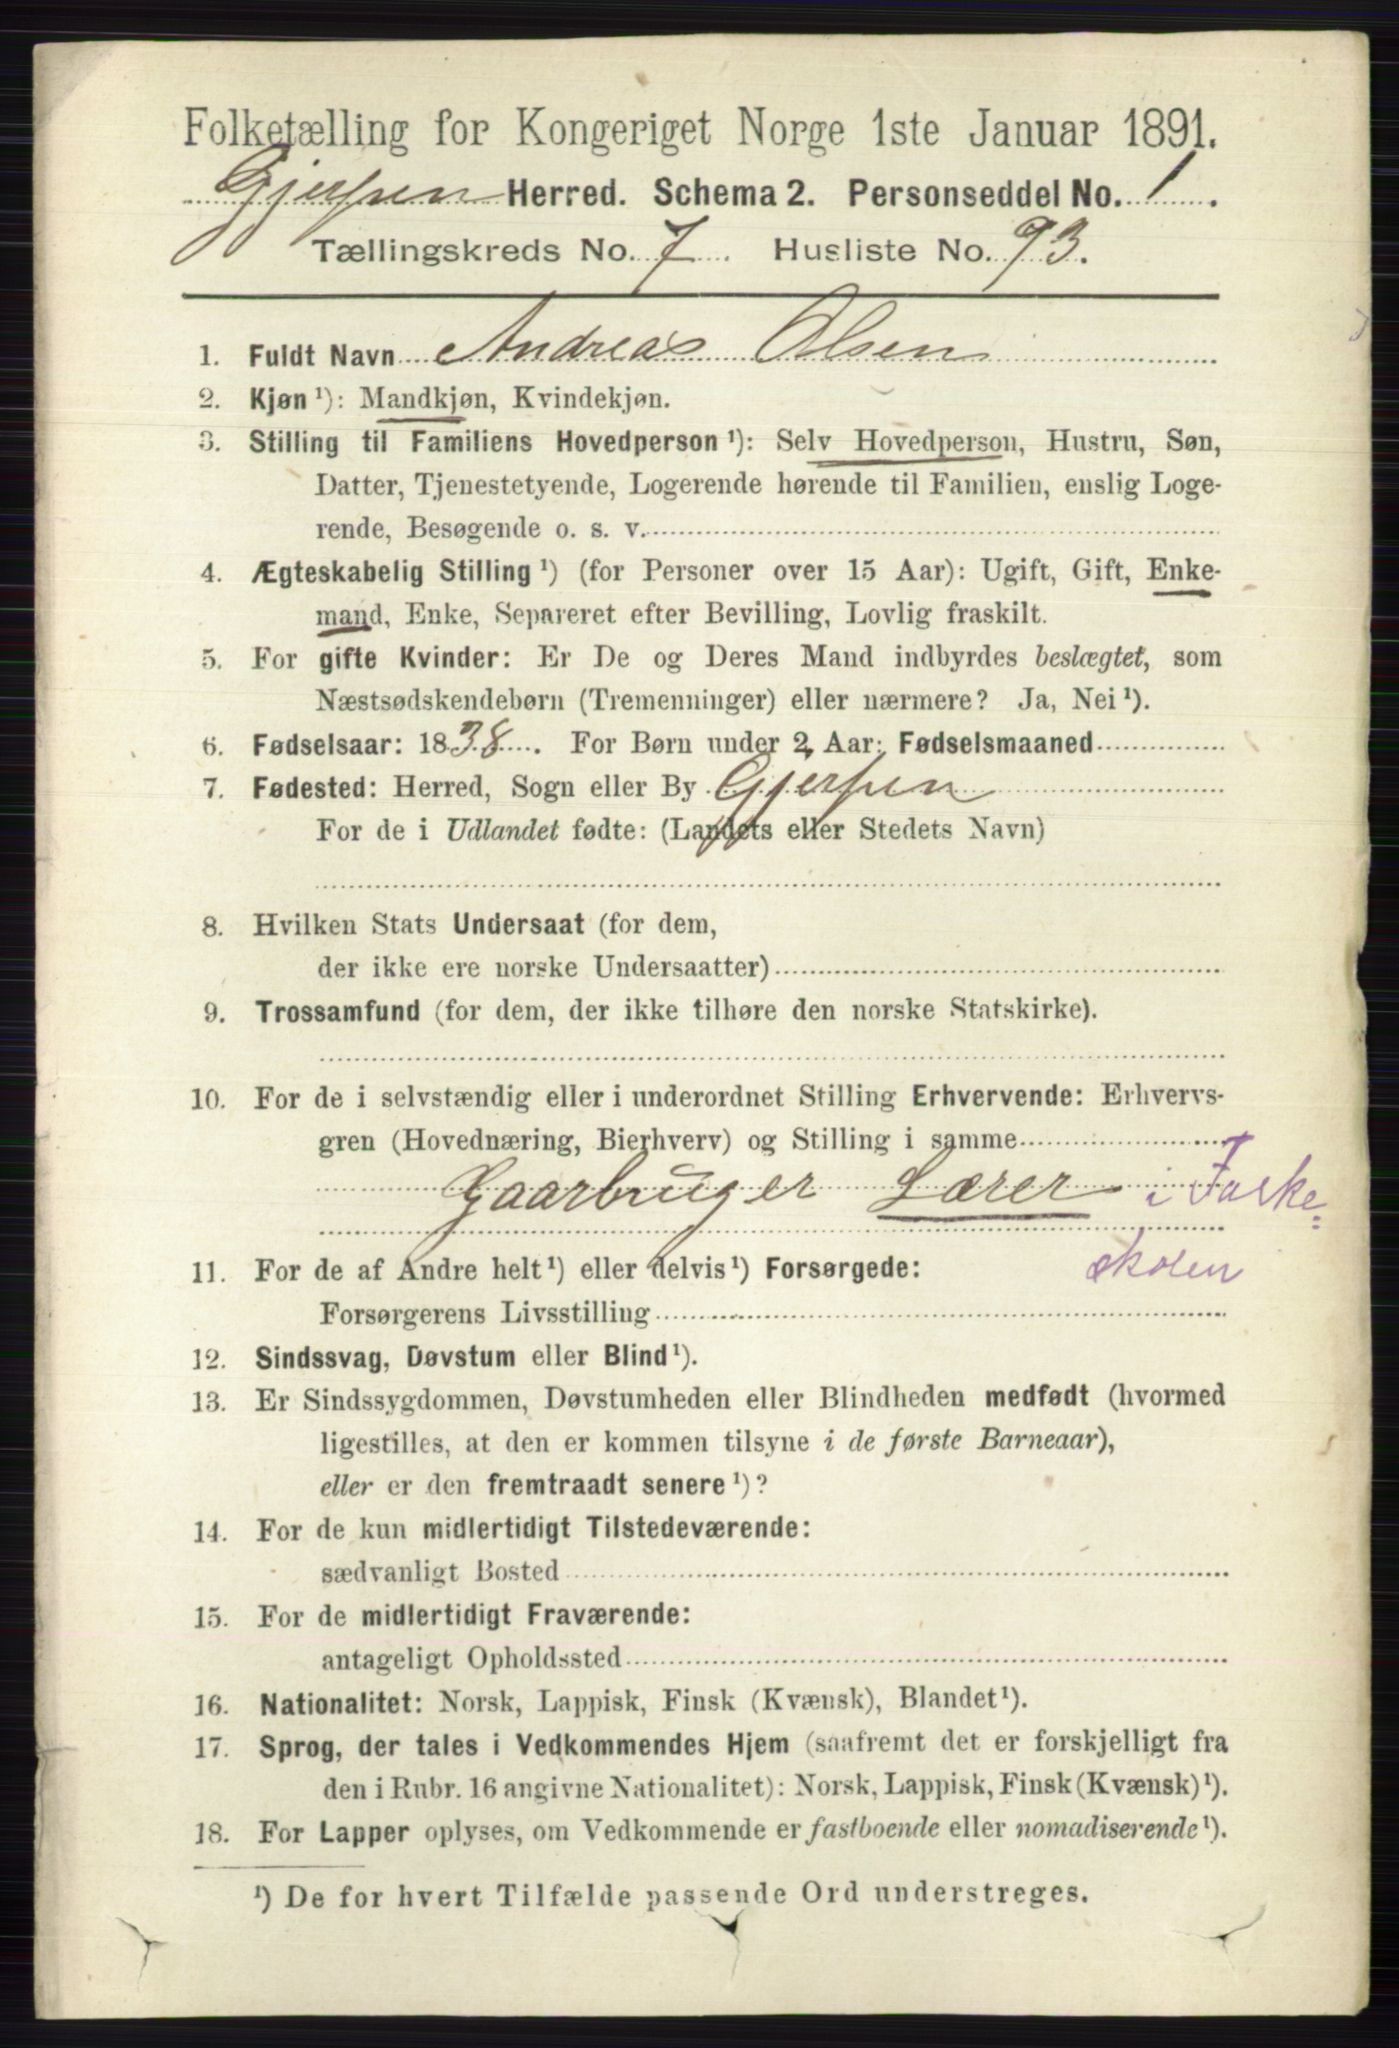 Folketælling for Kongeriget Norge 1ste Januar 1891.
Gjerpen Herred. Schema 2. Personseddel No. 1.
Tællingskreds No. 7. Husliste No. 93.
1. Fuldt Navn Andreas Olsen
2. Kjøn ¹): Mandkjøn, Kvindekjøn.
3. Stilling til Familiens Hovedperson ¹): Selv Hovedperson, Hustru, Søn,
Datter, Tjenestetyende, Logerende hørende til Familien, enslig Loge-
rende, Besøgende o. s. v.
4. Ægteskabelig Stilling ¹) (for Personer over 15 Aar): Ugift, Gift, Enke-
mand, Enke, Separeret efter Bevilling, Lovlig fraskilt.
5. For gifte Kvinder: Er De og Deres Mand indbyrdes beslægtet, som
Næstsødskendebørn (Tremenninger) eller nærmere? Ja, Nei ¹).
6. Fødselsaar: 1838. For Børn under 2 Aar: Fødselsmaaned
7. Fødested: Herred, Sogn eller By Gjerpen
For de i Udlandet fødte: (Landets eller Stedets Navn)
8. Hvilken Stats Undersaat (for dem,
der ikke ere norske Undersaatter)
9. Trossamfund (for dem, der ikke tilhøre den norske Statskirke).
10. For de i selvstændig eller i underordnet Stilling Erhvervende: Erhvervs-
gren (Hovednæring, Bierhverv) og Stilling i samme
Gaarbruger Lærer i Folke=
skolen
11. For de af Andre helt ¹) eller delvis ¹) Forsørgede:
Forsørgerens Livsstilling
12. Sindssvag, Døvstum eller Blind ¹).
13. Er Sindssygdommen, Døvstumheden eller Blindheden medfødt (hvormed
ligestilles, at den er kommen tilsyne i de første Barneaar),
eller er den fremtraadt senere ¹)?
14. For de kun midlertidigt Tilstedeværende:
sædvanligt Bosted
15. For de midlertidigt Fraværende:
antageligt Opholdssted
16. Nationalitet: Norsk, Lappisk, Finsk (Kvænsk), Blandet ¹).
17. Sprog, der tales i Vedkommendes Hjem (saafremt det er forskjelligt fra
den i Rubr. 16 angivne Nationalitet): Norsk, Lappisk, Finsk (Kvænsk) ¹).
18. For Lapper oplyses, om Vedkommende er fastboende eller nomadiserende ¹).
¹) De for hvert Tilfælde passende Ord understreges.